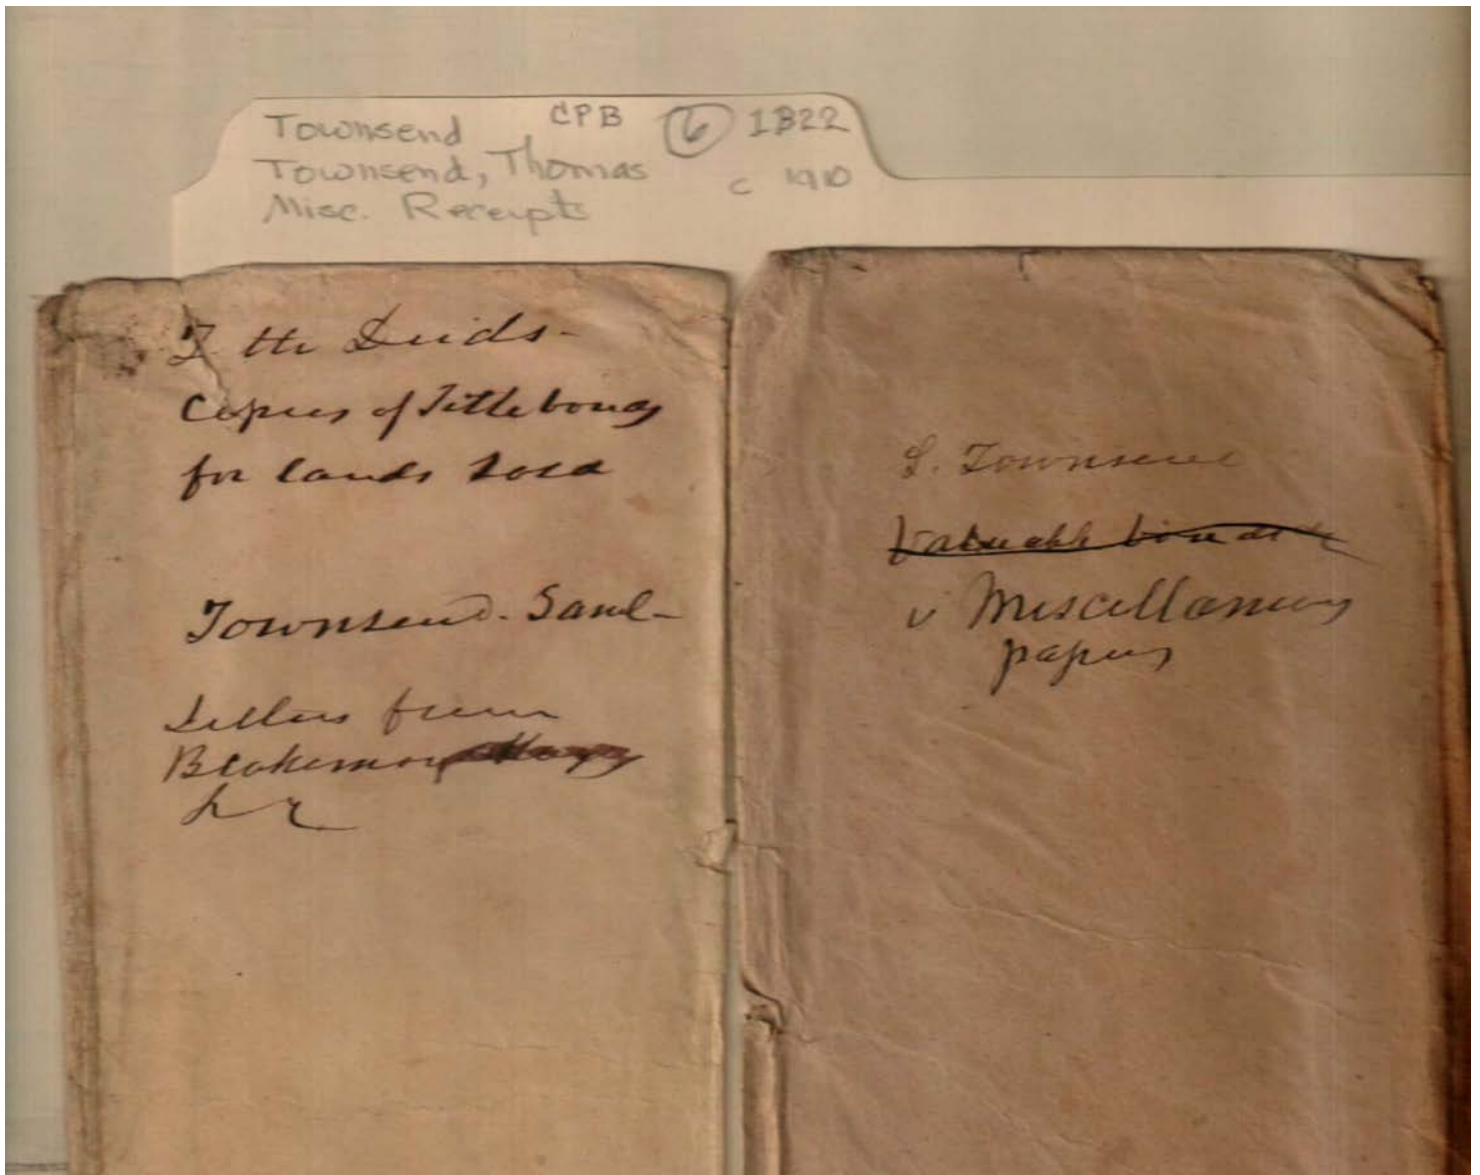 Townsend CPB 6 1822
Townsend, Thomas c 1910
Misc. Receipts
Title Deeds-
Copies of Title bonds
for lands sold
Townsend. Saml-
Letters from
Blakemore
S. Townsend
Valuable bonds &
& Miscellaneous
papers